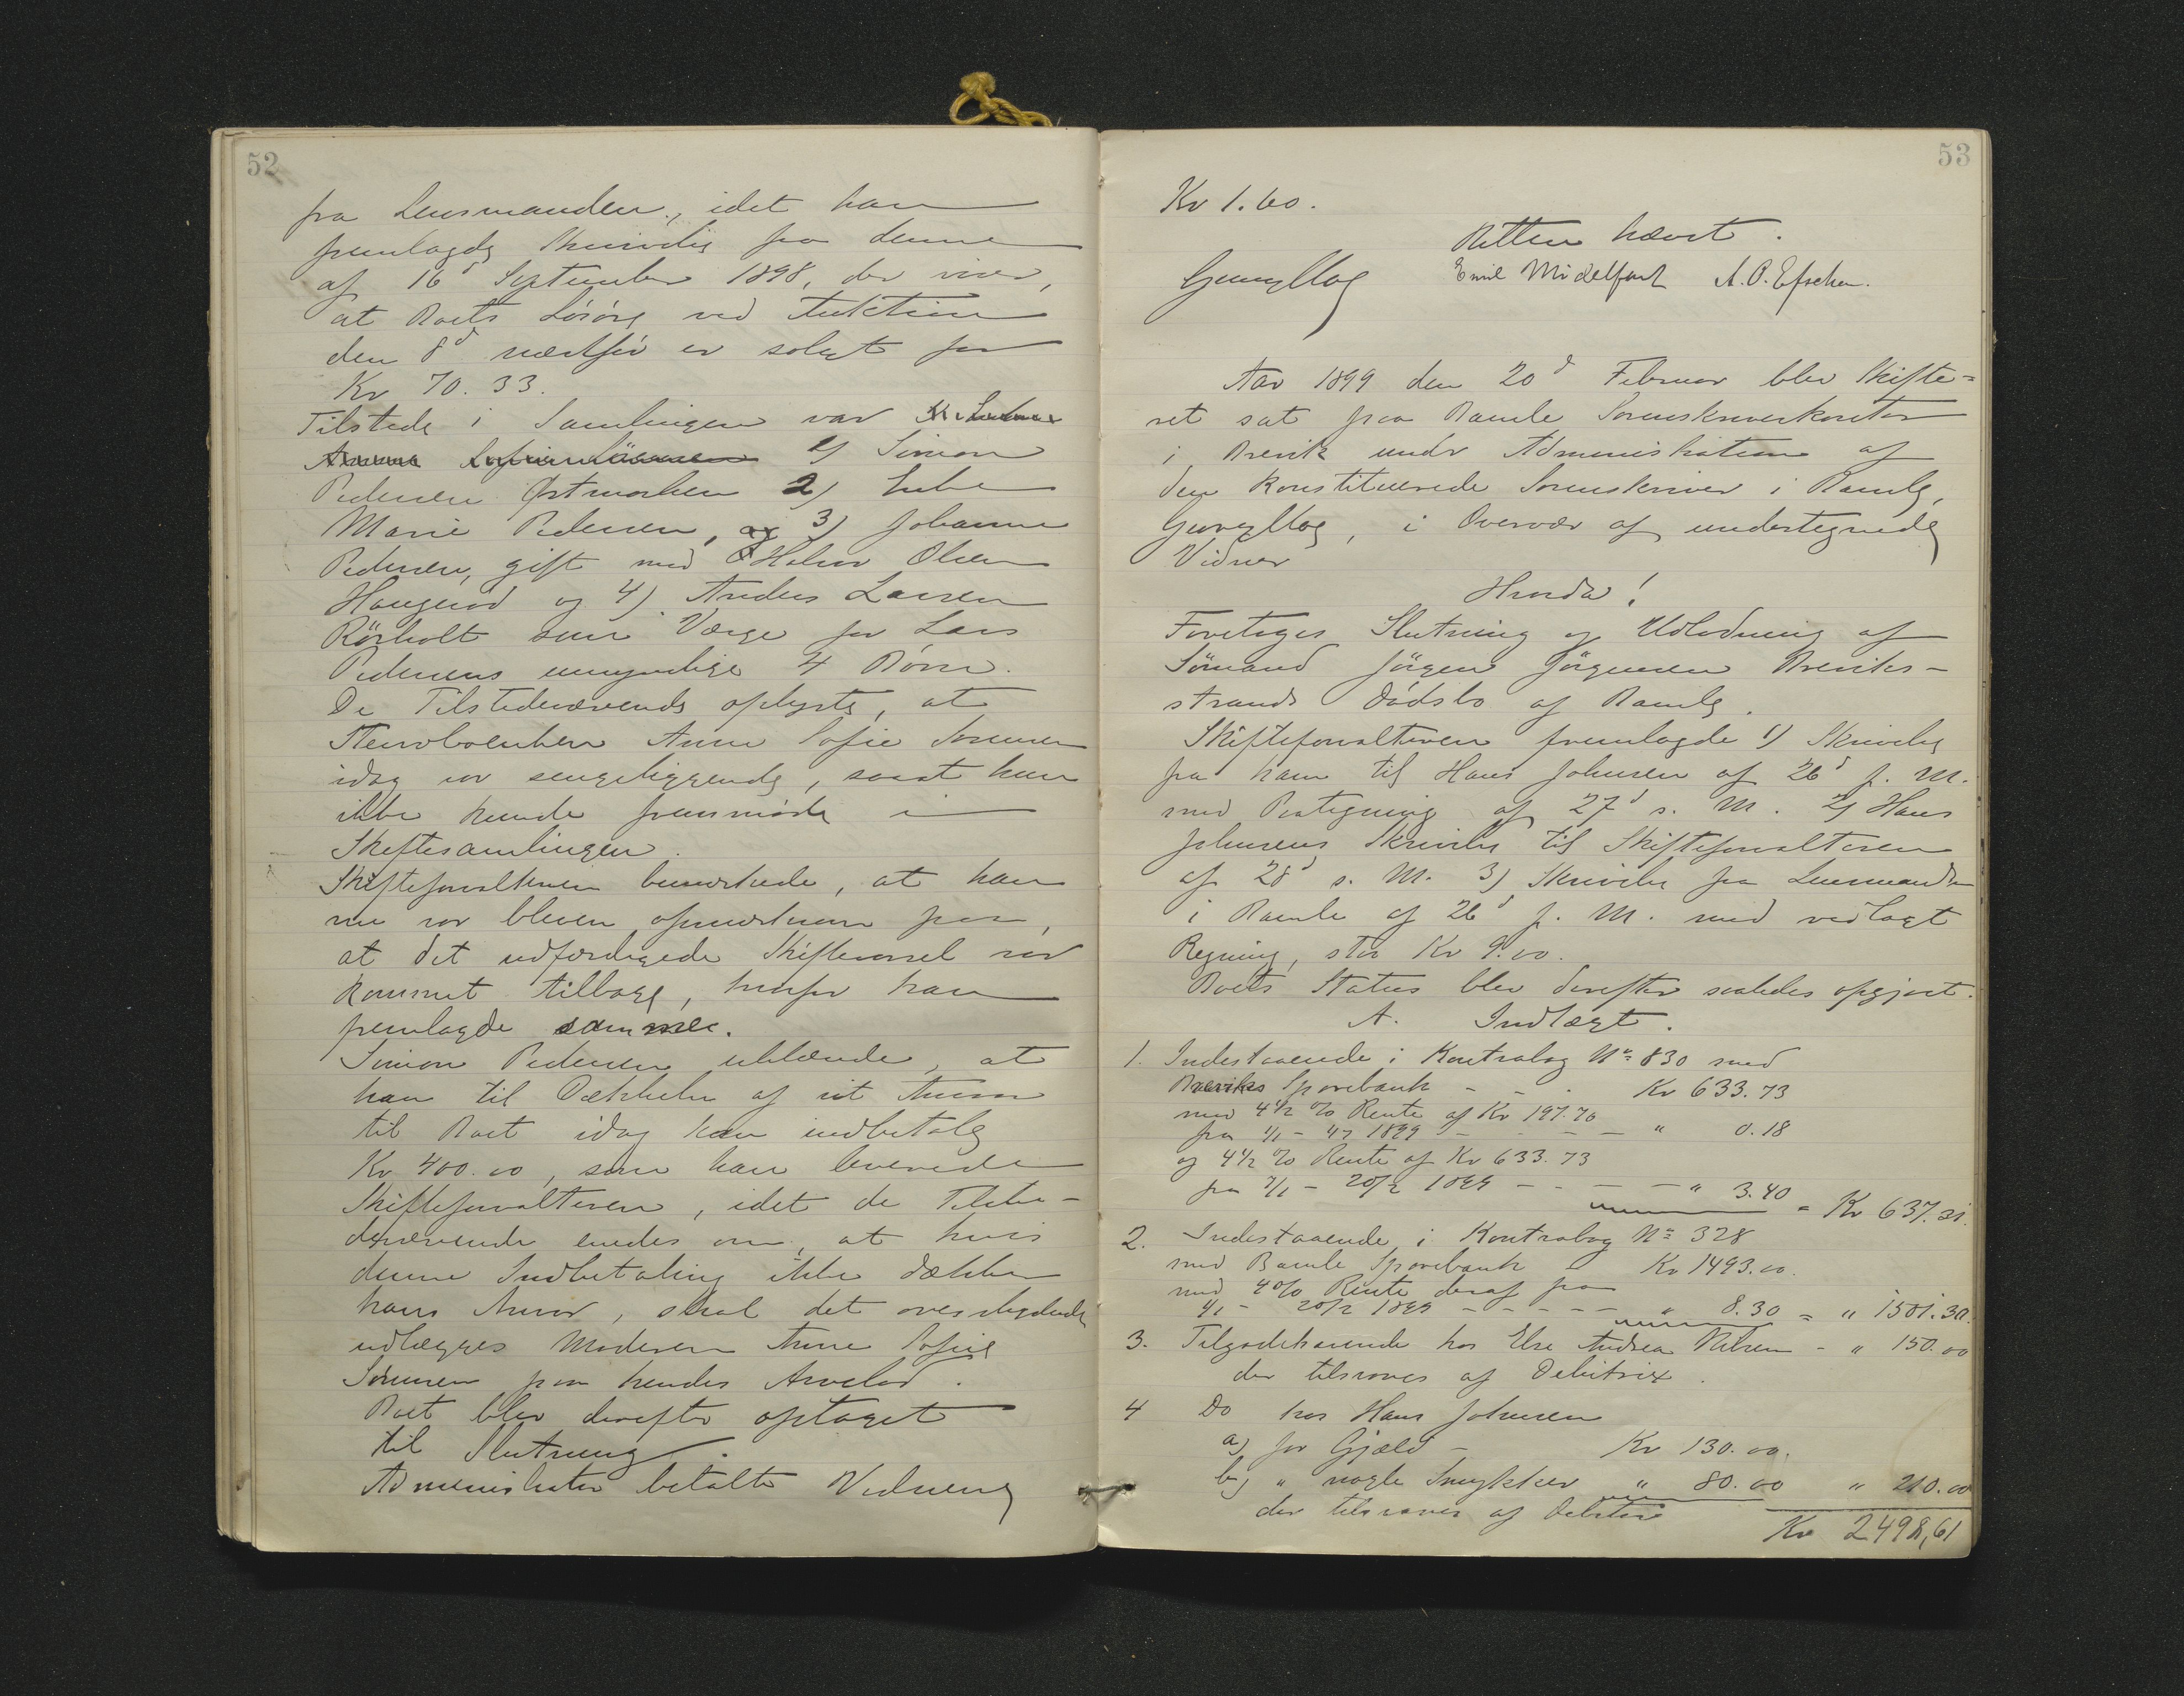 52
fra Lensmanden, idet han
fremlagde Skrivelse fra denne
af 16d September 1898, der viser,
at Boets Løsøre ved Auktion
den 8d næstfør er solgt for
Kr 70.33.
Tilstede i Samlingen var
1) Simon
Pedersen Østmarken 2)
Marie Pedersen, og 3) Johanne
Pedersen, gift med Halvor Olsen
Haugerød og 4) Anders Larsen
Rörholt som Værge for Lars
Pedersens umyndige 4 Børn.
De Tilstedeværende oplyste, at
Stervboenken Anne Sofie Sørensen
idag var sengeliggende, saaat hun
ikke kunde fremmøde i
Skiftesamlingen.
Skifteforvalteren bemærkede, at han
nu var bleven opmærksom paa,
at det udfærdigede Skiftevarsel var
kommet tilbage, hvorfor han
fremlagde samme.
Simon Pedersen erklærede, at
han til Dækkelse af sit Ansvar
til Boet idag kan indbetale
Kr 400.00, som han leverede
Skifteforvalteren, idet de Tilste-
deværende enedes om, at hvis
denne Indbetaling ikke dækker
hans Ansvar, skal det overskydende
udlægges Moderen Anne Sofie
Sørensen paa hendes Arvelod.
Boet blev derefter optaget
til Slutning.
Administrator betalte Vidnerne
53
Kr 1.60.
Retten hævet.
Emil Midelfart A. O.
Aar 1899 den 20d Februar blev Skifte-
ret sat paa Bamle Sorenskriverkontor
i Brevik under Administration af
den konstituerede Sorenskriver i Bamle,
i Overvær af undertegnede
Vidner
Hvorda!
Foretoges Slutning og Udlodning af
Sömand Jörgen Jörgensen Breviks-
strands Dödsbo af Bamle.
Skifteforvalteren fremlagde 1) Skrivelse
fra ham til Hans Johnsen af 26d f. M.
med Paategning af 27d s. M. 2) Hans
Johnsens Skrivelse til Skifteforvalteren
af 28d s. M. 3) Skrivelse fra Lensmanden
i Bamle af 26d f. M. med vedlagt
Regning, stor Kr 9.00.
Boets Status blev derefter saaledes opgjort.
A. Indtægt.
1. Indestaaende i Kontrabog No 830 med
Breviks Sparebank - - - Kr 633.73
med 4 1/2 % Rente af Kr 197.70
fra 1/1 - 4/1 1899 - - - - " 0.18
og 4 1/2 % Rente af Kr 633.73
fra 7/1 - 20/2 1899 - - - - " 3.40 = Kr 637.31.
2. Indestaaende i Kontrabog No 328
med Bamle Sparebank - Kr 1493.00.
med 4 % Rente deraf fra
1/1 - 20/2 1899 - - - - - " 8.30 = " 1501.30.
3. Tilgodehavende hos Else Andrea Nilsen - " 150.00
der tilsvares af Debitrix.
4 Do hos Hans Johnsen
a) for Gjæld - Kr 130.00.
b) " nogle Smykker " 80.00 " 210.00
der tilsvares af Debitor
Kr 2498,61